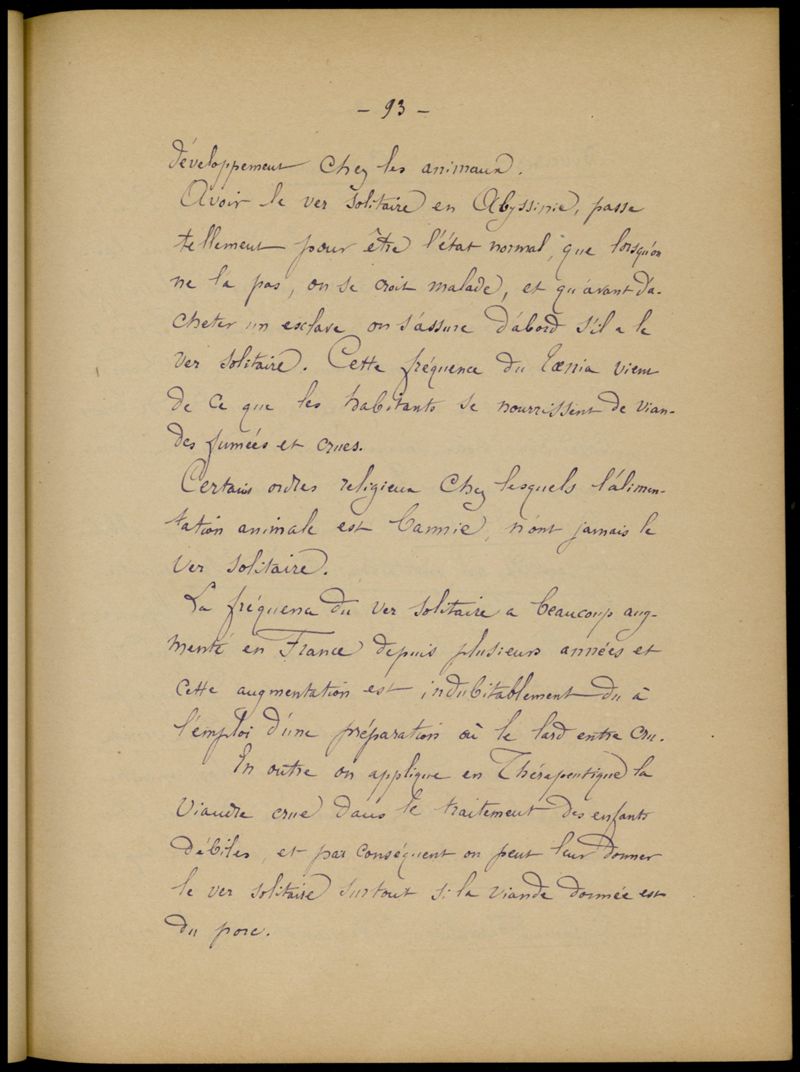 - 93 -
développement chez les animaux.
Avoir le ver solitaire en Abyssinie, passe
tellement pour être l'état normal, que lorsqu'on
ne l'a pas, on se croit malade, et qu'avant d'a-
cheter un esclave on s'assure d'abord s'il a le
ver solitaire. Cette fréquence du Tænia vient
de ce que les habitants se nourrissent de vian-
des fumées et crues.
Certains ordres religieux chez lesquels l'alimen-
tation animale est bannie, n'ont jamais le
ver solitaire.
La fréquence du ver solitaire a beaucoup aug-
menté en France depuis plusieurs années et
cette augmentation est indubitablement du à
l'emploi d'une préparation où le lard entre cru.
En outre on applique en Thérapeutique la
viande crue dans le traitement des enfants
débiles, et par conséquent on peut leur donner
le ver solitaire surtout si la viande donnée est
du porc.